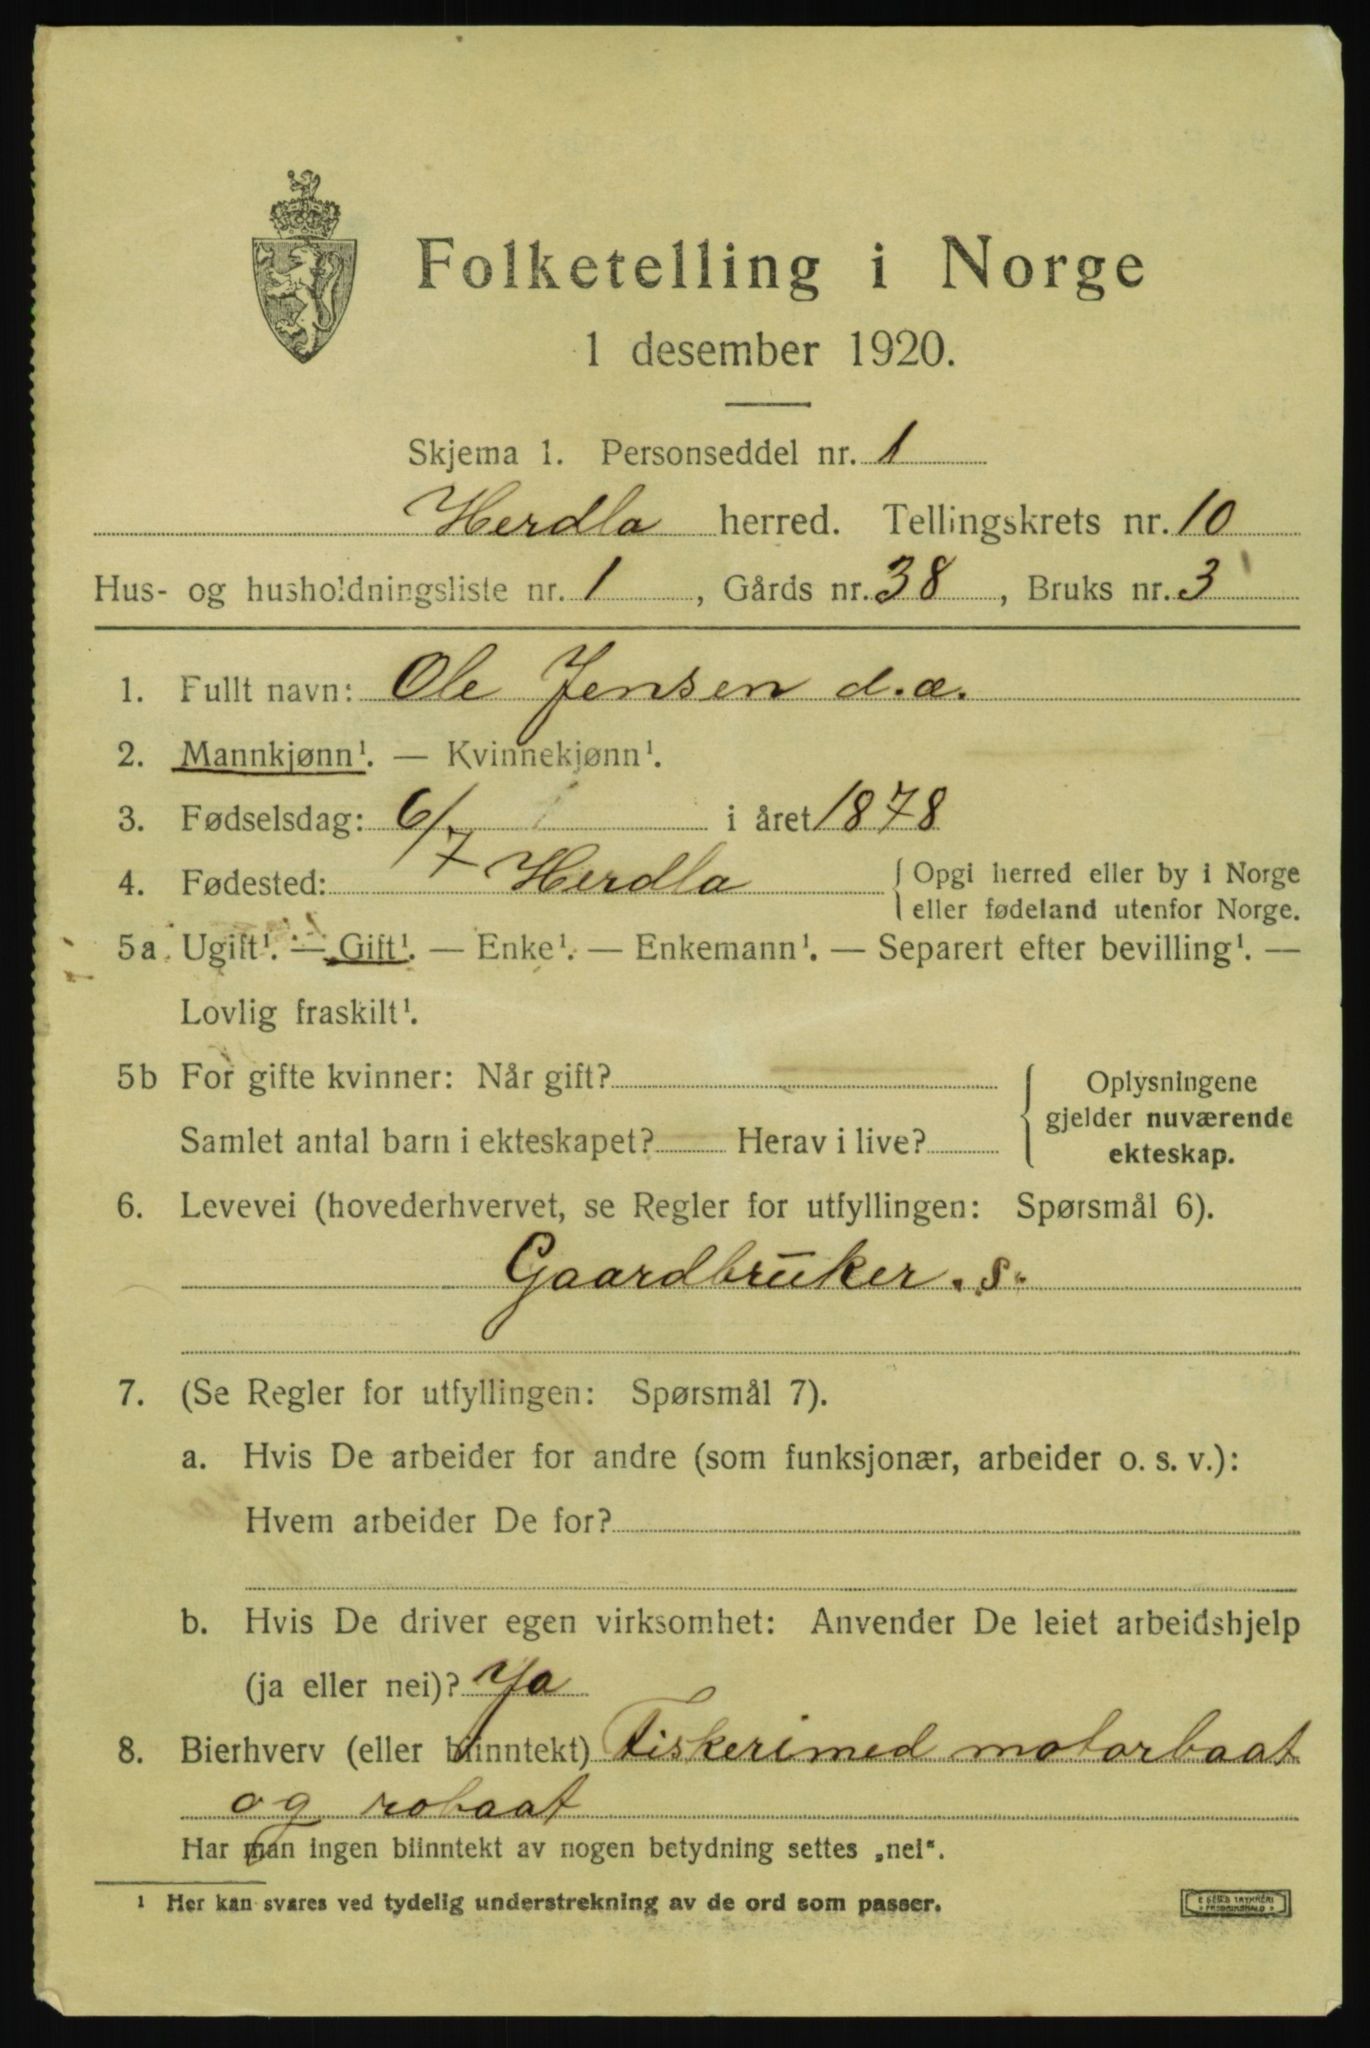 Folketelling i Norge
1 desember 1920.
Skjema 1. Personseddel nr. 1
Herdla herred. Tellingskrets nr. 10
Hus- og husholdningsliste nr. 1, Gårds nr. 38, Bruks nr. 3
1. Fullt navn: Ole Jensen d.æ.
2. Mannkjønn¹. — Kvinnekjønn¹.
3. Fødselsdag: 6/7 i året 1878
4. Fødested: Herdla { Opgi herred eller by i Norge
eller fødeland utenfor Norge.
5a. Ugift¹. — Gift¹. — Enke¹. — Enkemann¹. — Separert efter bevilling¹. —
Lovlig fraskilt¹.
5b For gifte kvinner: Når gift? { Oplysningene
gjelder nuværende
Samlet antal barn i ekteskapet? Herav i live?
ekteskap.
6. Levevei (hovederhvervet, se Regler for utfyllingen: Spørsmål 6).
Gaardbruker. s.
7. (Se Regler for utfyllingen: Spørsmål 7).
a. Hvis De arbeider for andre (som funksjonær, arbeider o. s. v.):
Hvem arbeider De for?
b. Hvis De driver egen virksomhet: Anvender De leiet arbeidshjelp
(ja eller nei)? Ja
8. Bierhverv (eller biinntekt) Fiskeri med motorbaat
og robaat
Har man ingen biinntekt av nogen betydning settes „nei“.
¹ Her kan svares ved tydelig understrekning av de ord som passer.